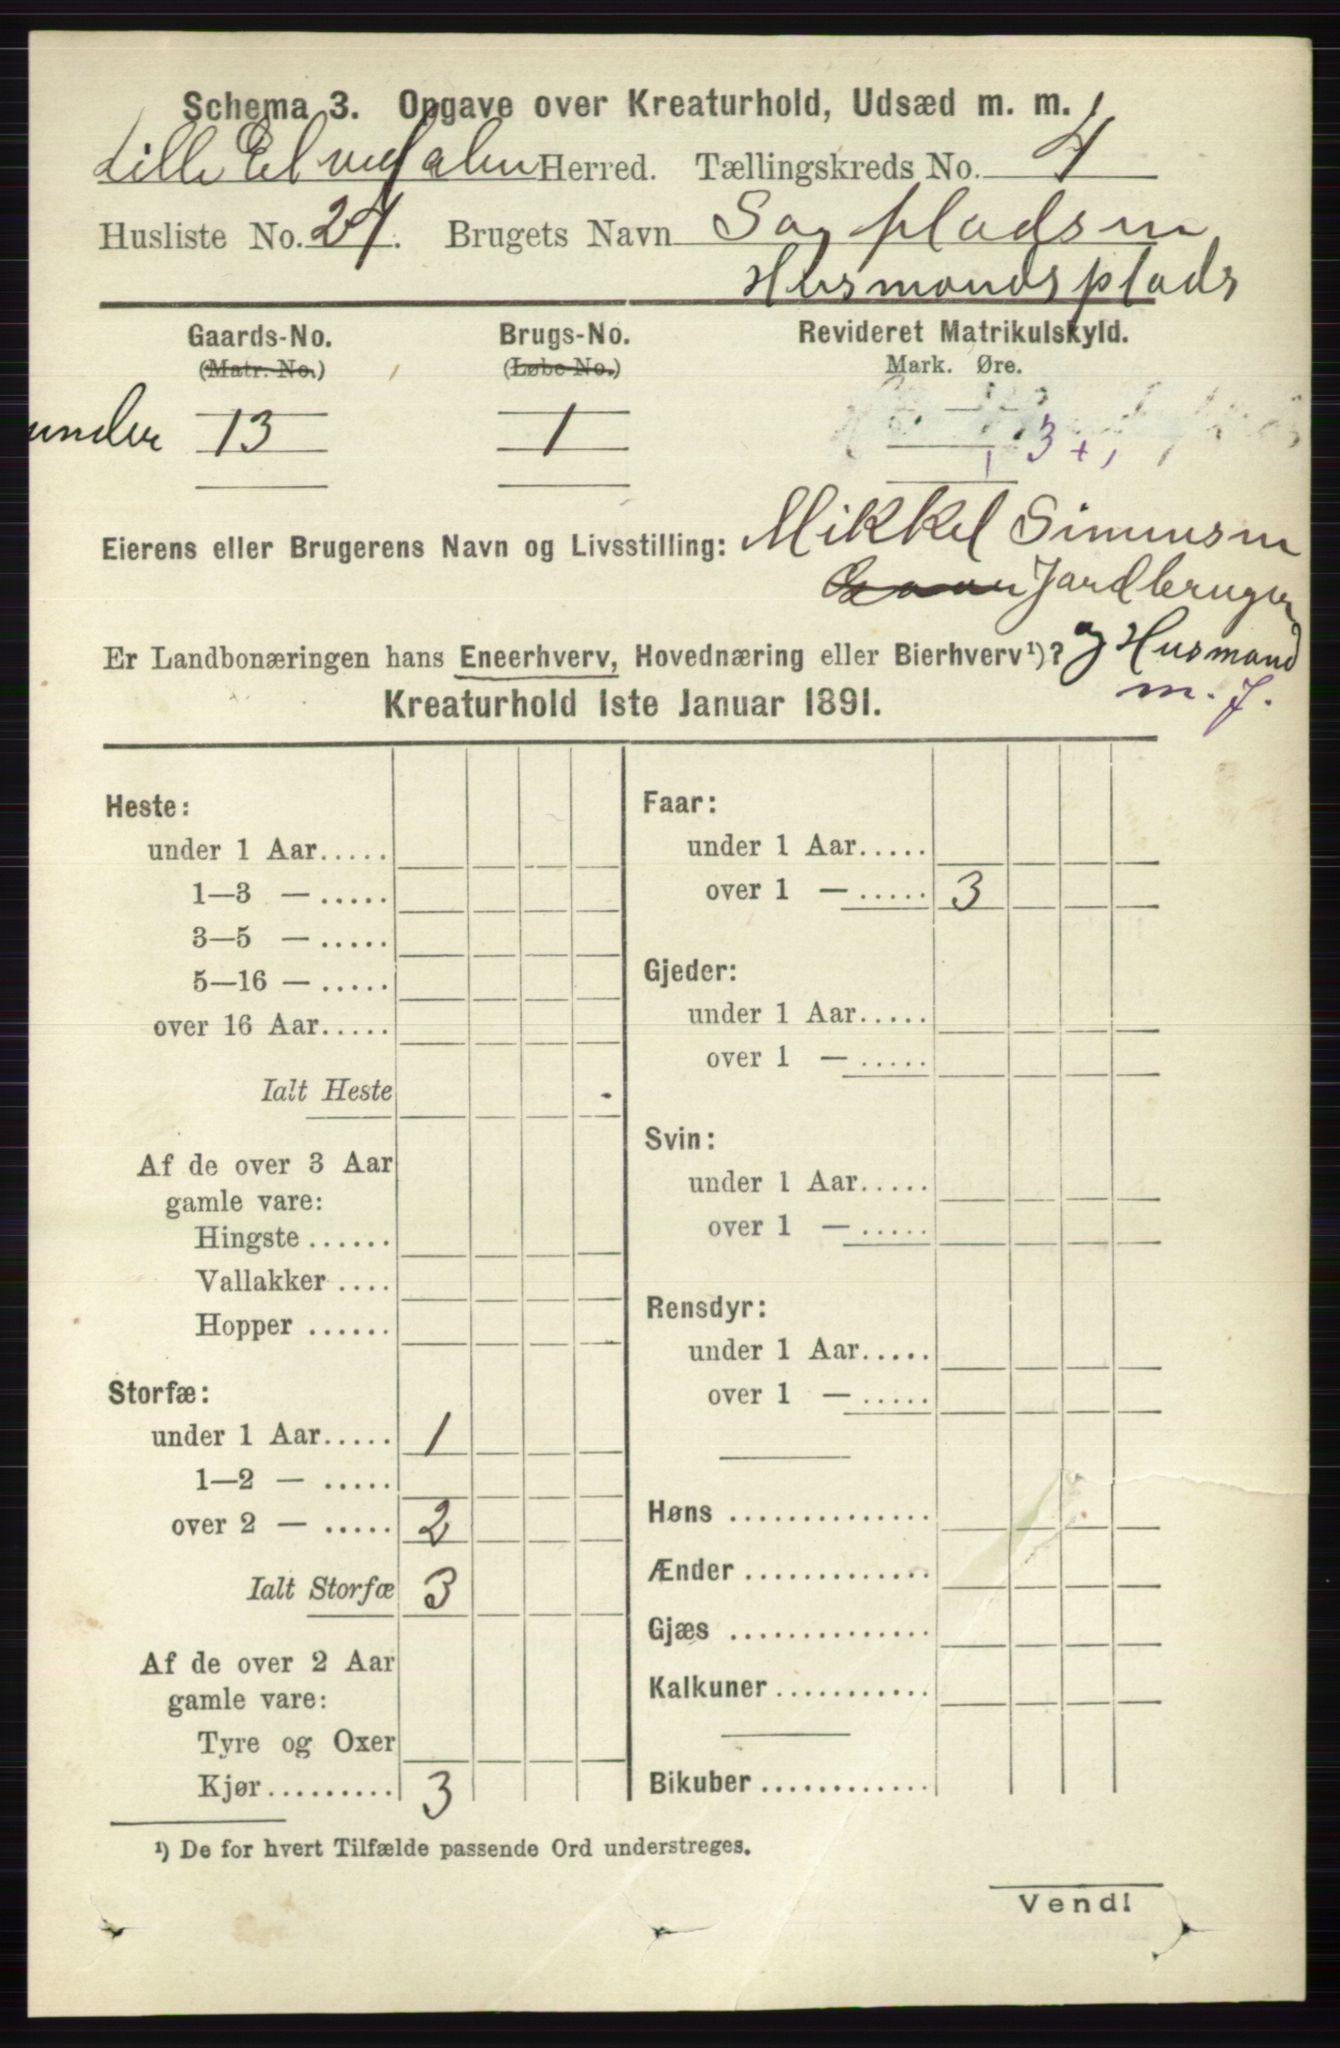 Schema 3. Opgave over Kreaturhold, Udsæd m. m.
Lille Elvedalen Herred. Tællingskreds No. 4
Husliste No. 27. Brugets Navn Sagpladsen
Husmandsplads
Gaards-No. Brugs-No. Revideret Matrikulskyld.
(Matr. No.) (Løbe No.) Mark. Øre.
under 13 1 3 +
Eierens eller Brugerens Navn og Livsstilling: Mikkel Simensen
Jordbruger
Er Landbonæringen hans Eneerhverv, Hovednæring eller Bierhverv¹)? og Husmand
m. J.
Kreaturhold 1ste Januar 1891.
Heste:
under 1 Aar.....
1—3 — .....
3—5 — .....
5—16 — .....
over 16 Aar.....
Ialt Heste
Af de over 3 Aar
gamle vare:
Hingste ......
Vallakker ....
Hopper ......
Storfæ:
under 1 Aar..... 1
1—2 — .....
over 2 — ..... 2
Ialt Storfæ 3
Af de over 2 Aar
gamle vare:
Tyre og Oxer
Kjør......... 3
Faar:
under 1 Aar.....
over 1 — ..... 3
Gjeder:
under 1 Aar.....
over 1 — .....
Svin:
under 1 Aar.....
over 1 — .....
Rensdyr:
under 1 Aar.....
over 1 — .....
Høns ..............
Ænder .............
Gjæs ..............
Kalkuner ...........
Bikuber ............
¹) De for hvert Tilfælde passende Ord understreges.
Vend!